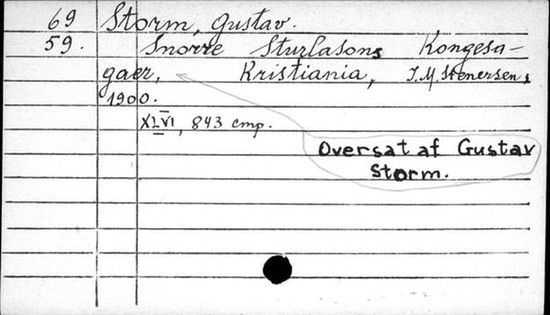 69 Storm, Gustav.
59. Snorre Sturlasons Kongesa-
gaer, Kristiania, J.M. Stenersen,
1900.
XLVI, 843 cmp.
Oversat af Gustav
Storm.